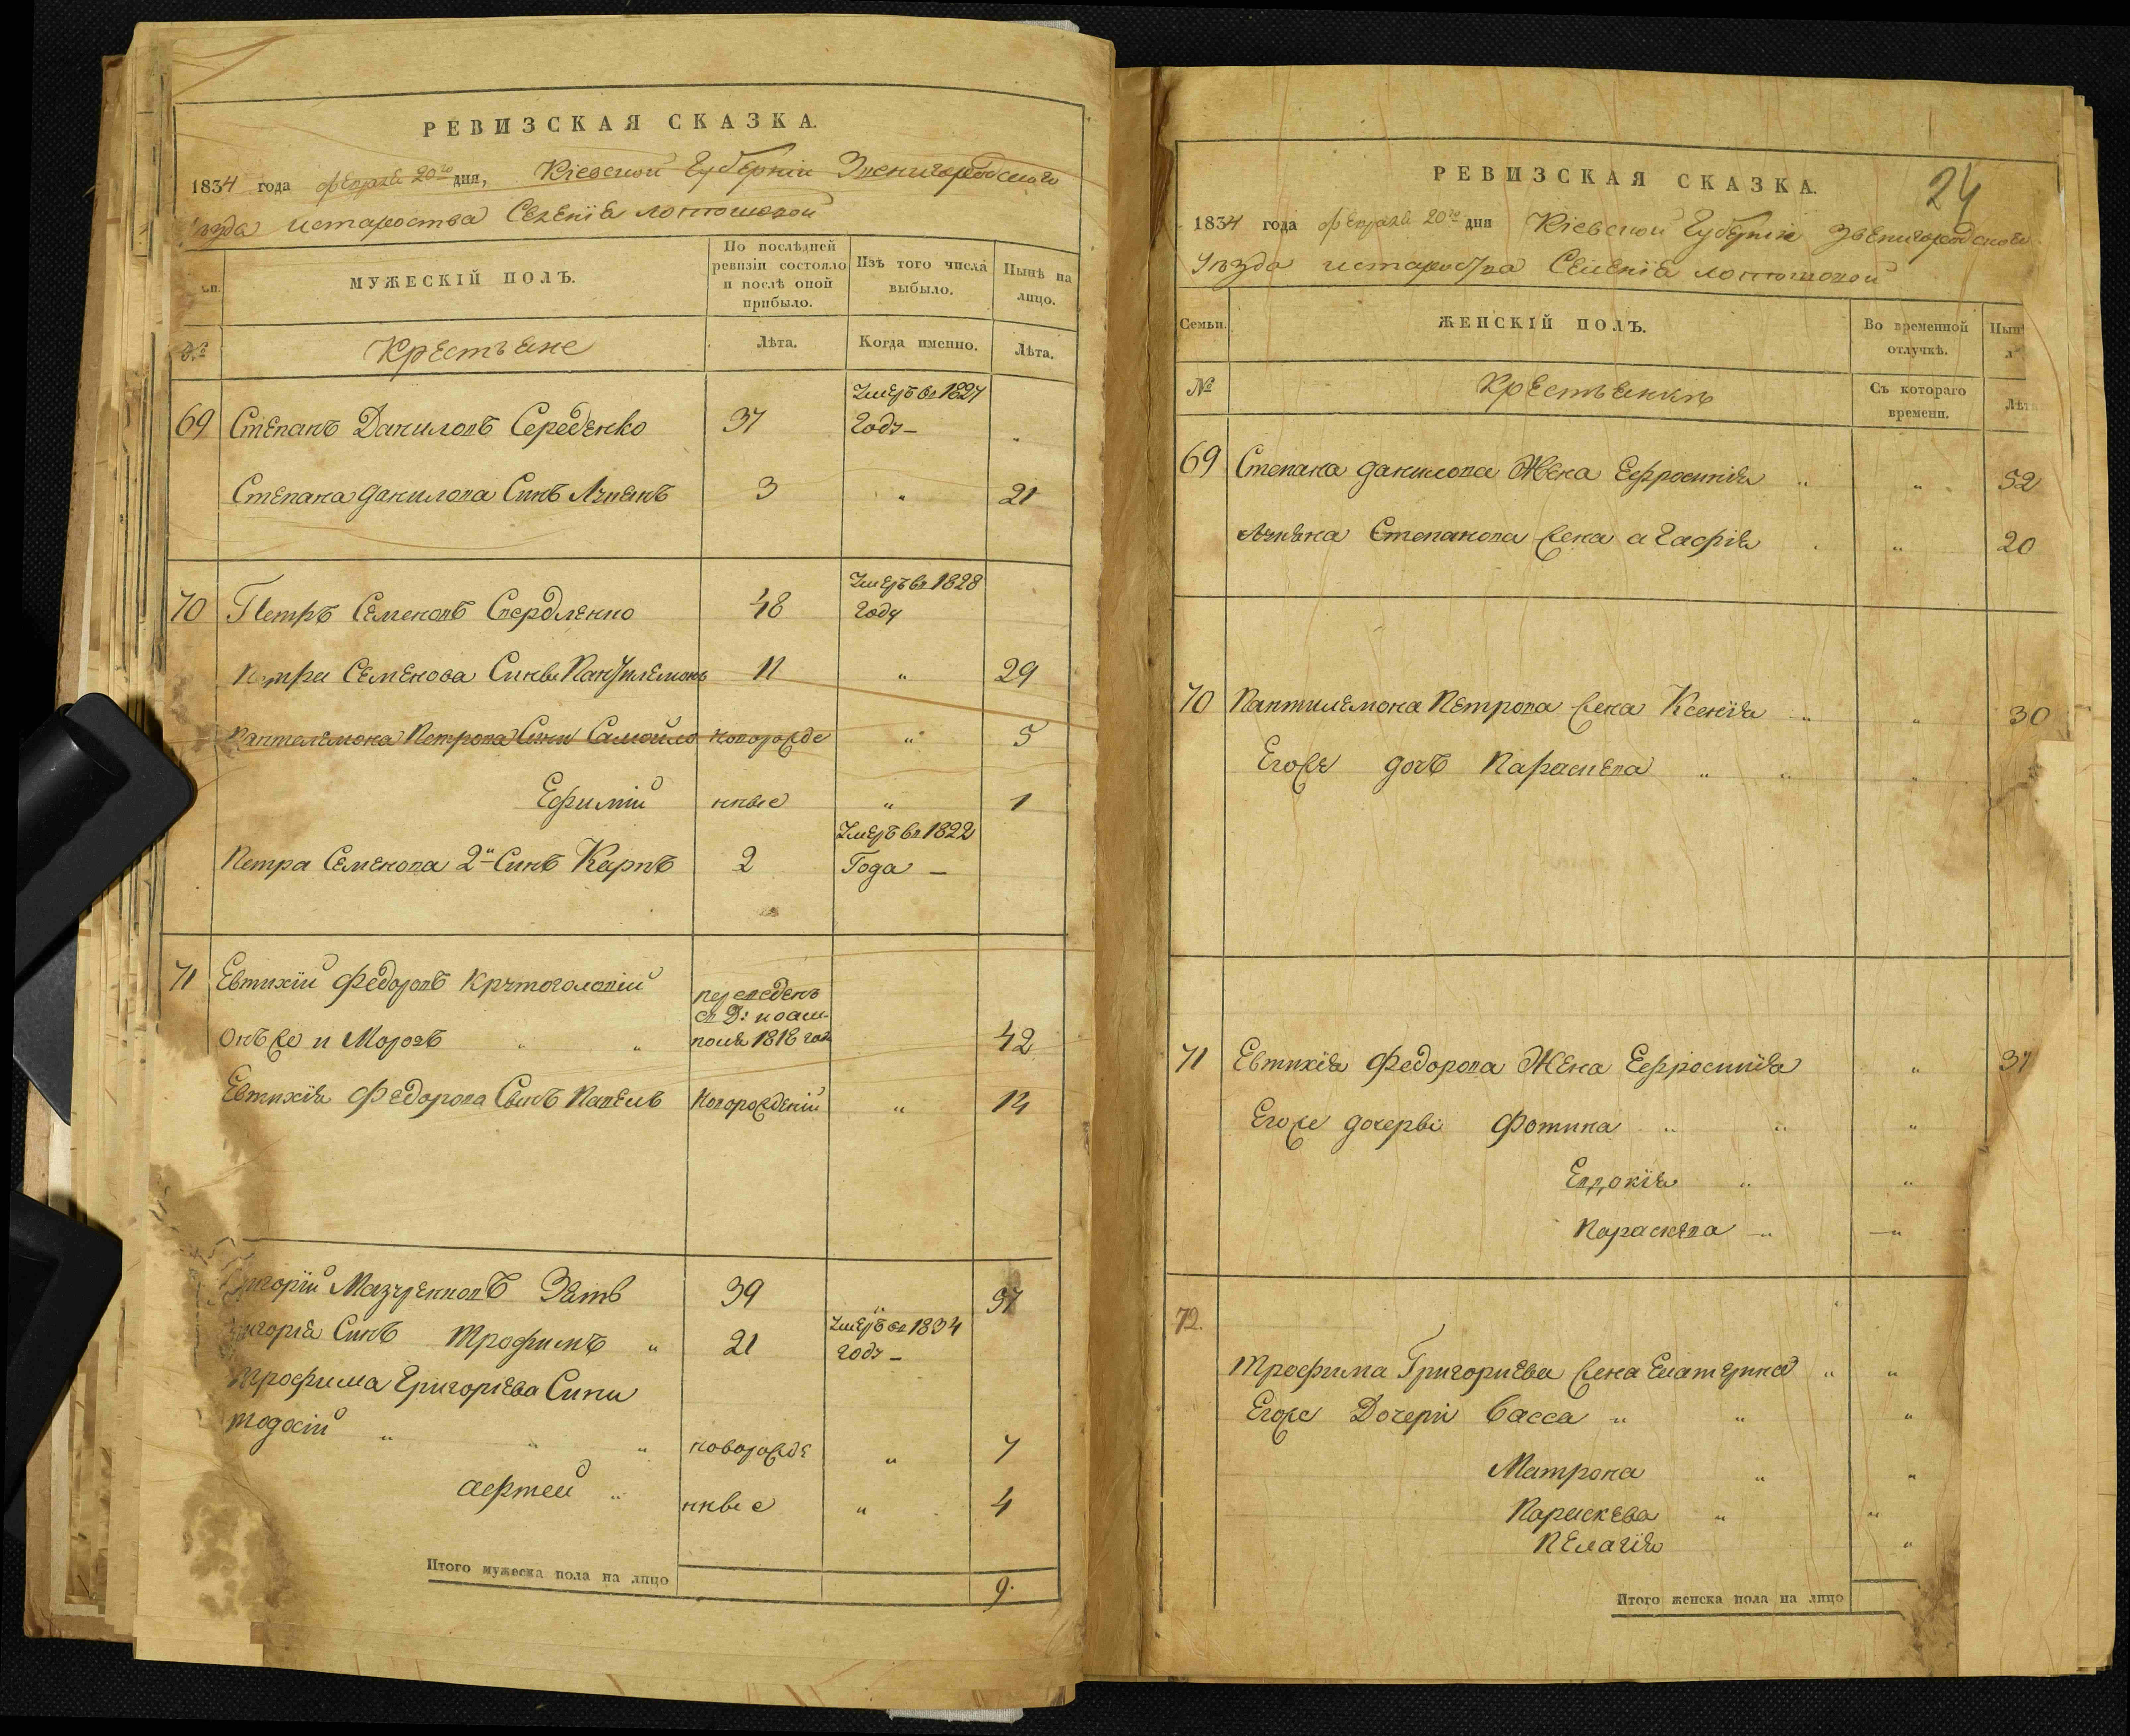 РЕВИЗСКАЯ СКАЗКА.
1834 года февраля 20го дня, Кіевской Губерніи Звенигородского
уѣзда истароства Селенія
По послѣдней ревизіи состояло и послѣ оной прибыло.
Изъ того числа выбыло.
Нынѣ на лицо.
МУЖЕСКІЙ ПОЛЪ.
Крестъяне
Лѣта.
Когда именно.
Лѣта.
69 Степанъ Даниловъ Середенко 37 Умеръ въ 1827 Году
Степана данилова Синъ 3 " 21
70 Петръ Семеновъ 48 Умеръ въ 1828 Году
Петра Семенова Синъ Пантилемонъ 11 " 29
Пантелемона Петрова Сини Самойло новорожде " 5
Ефимій нные " 1
Петра Семенова 2й Синъ Карпъ 2 Умеръ въ 1822 Года
71 Евтихій Федоровъ Крутоголовій переведенъ
онъже и Морозъ " " 1818 год 42
Евтихія Федорова Синъ Павелъ новорожденій " 14
Григорій Зять 39 37
Григорія Синъ Трофимъ " 21 Умеръ въ 1834 году
Трофима Григоріева Сини
тодосій " " " новорожде " 7
нные " 4
Итого мужеска пола на лицо 9.
24
РЕВИЗСКАЯ СКАЗКА.
1834 года февраля 20го дня Кіевской Губерніи Звенигородского
Уѣзда истароства Селенія
Семьи.
ЖЕНСКІЙ ПОЛЪ.
Во временной отлучкѣ.
Нынѣ
№
Крестъянкъ
Съ котораго времени.
Лѣта
69 Степана данилова Жена Ефросинія " " 52
Степанова жена агафія " 20
70 Пантилемона Петрова жена Ксенія " " 30
Егоже дочъ Параскева " " "
71 Евтихія Федорова Жена Ефросинія " 37
Егоже дочеръ Фотина " " "
Евдокія " "
Параскева " "
72.
Трофима Григориева жена Екатерина " "
Егоже Дочери Васса " " "
Матрона " "
Параскева " "
Пелагія "
Итого женска пола на лицо